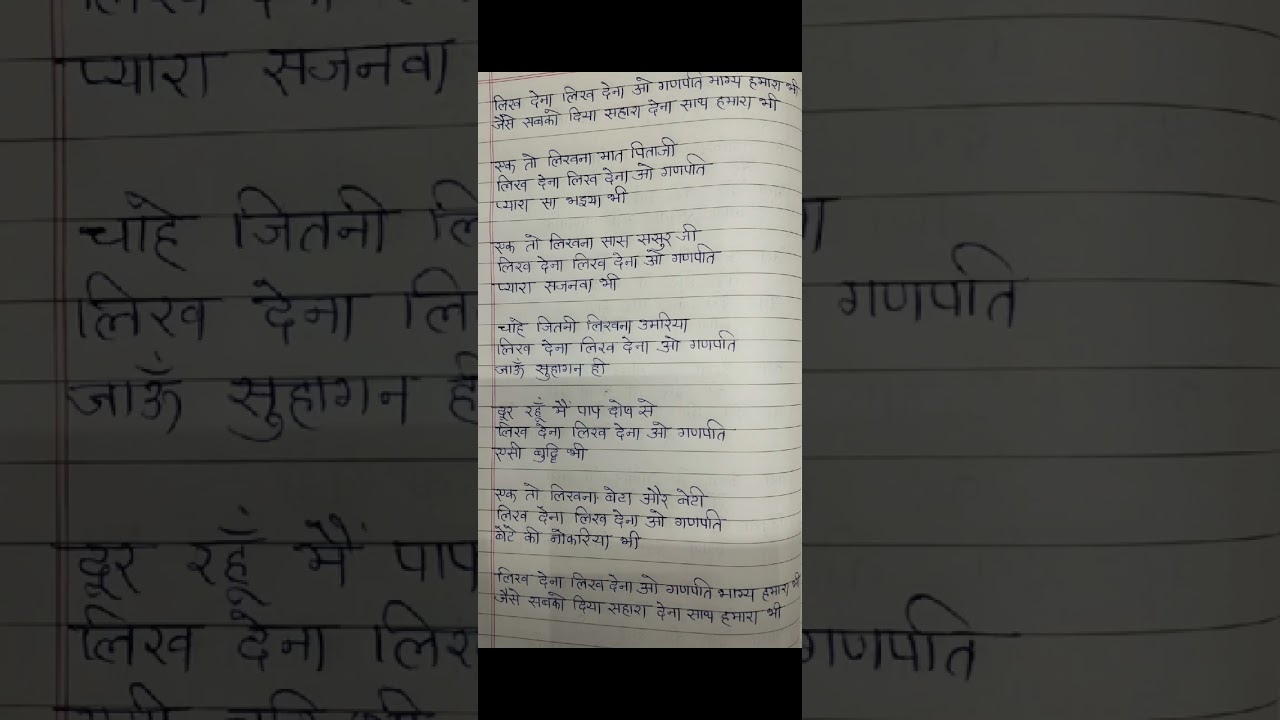 लिख देना लिख देना ओ गणपति भाग्य हमारा भी
जैसे सबको दिया सहारा देना साथ हमारा भी
एक तो लिखना मात पिताजी
लिख देना लिख देना ओ गणपति
प्यारा सा भइया भी
एक तो लिखना सास ससुर जी
लिख देना लिख देना ओ गणपति
प्यारा सजनवा भी
चाहे जितनी लिखना उमरिया
लिख देना लिख देना ओ गणपति
जाऊँ सुहागन ही
दूर रहूँ मैं पाप दोष से
लिख देना लिख देना ओ गणपति
एसी बुद्धि भी
एक तो लिखना बेटा और बेटी
लिख देना लिख देना ओ गणपति
बेटे की नोकरिया भी
लिख देना लिख देना ओ गणपति भाग्य हमारा भी
जैसे सबको दिया सहारा देना साथ हमारा भी